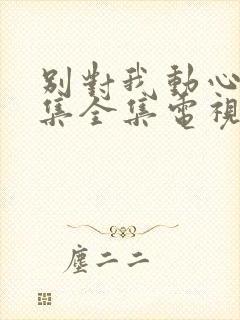 別對我動心
集全集電視
塵二二